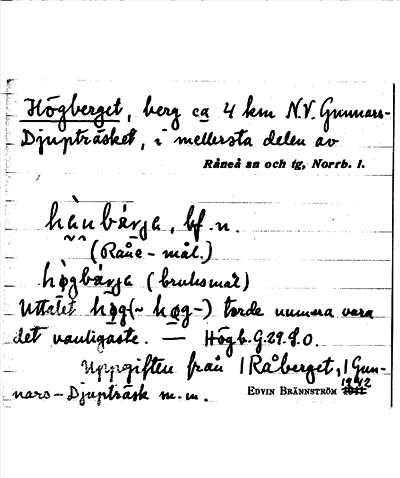 Högberget, berg ca 4 km N.V. Gunnars-
Djupträsket, i mellersta delen av
Råneå sn och tg, Norrb. l.
hàubárja, bf. n.
(Råne-mål.)
hògbárja (bruksmål)
Uttalet høg(~ høg-) torde numera vara
det vanligaste. — Högb. G.29.9.0.
Uppgiften från 1 Råberget, 1 Gun-
nars-Djupträsk m.m. EDVIN BRÄNNSTRÖM 1942